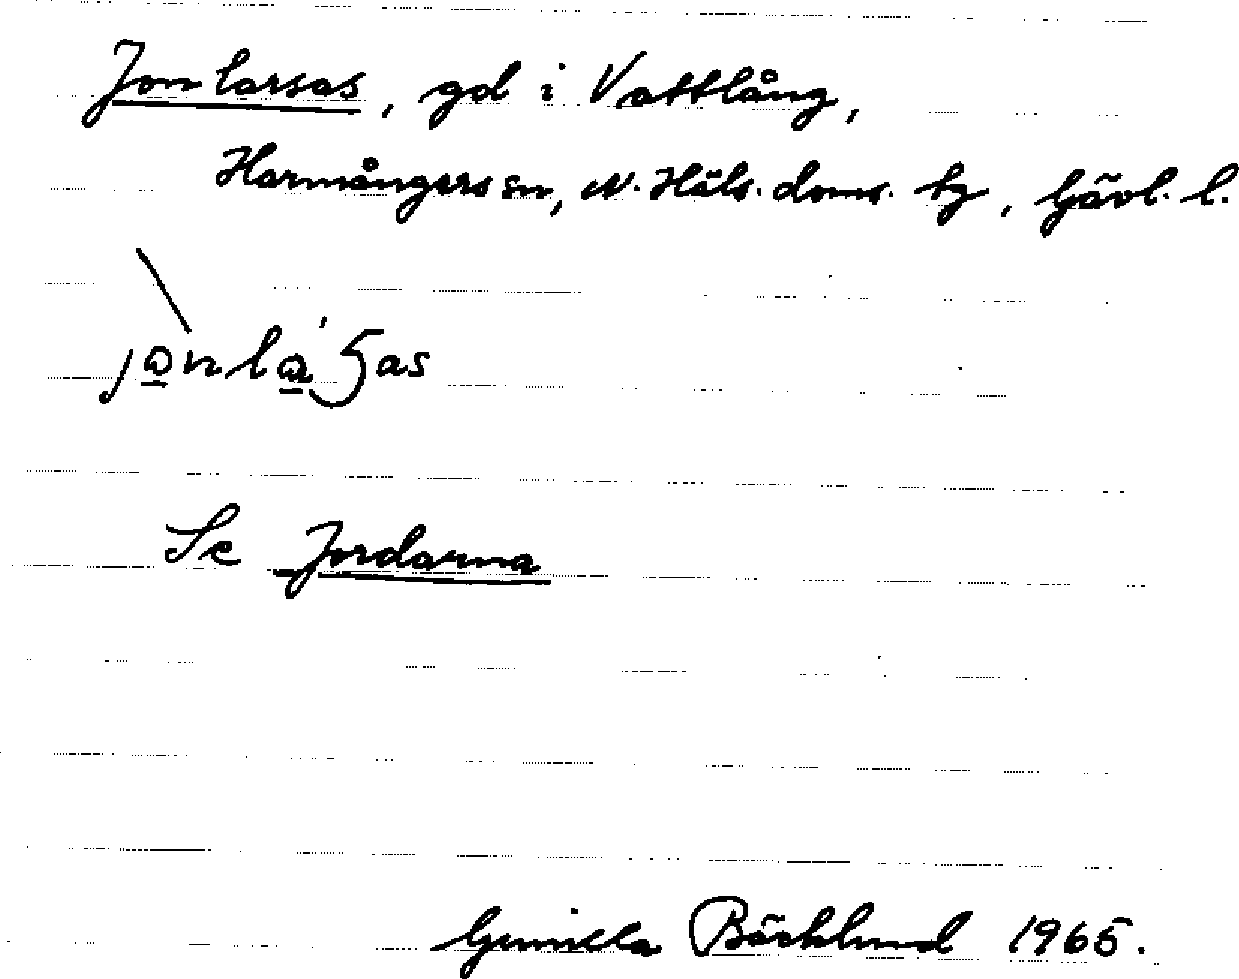 Jon Larsas, gd i Vattlång,
Harmångers sn, N. Häls. doms. tg, Gävl. l.
Se Jordarna
Gunilla Bäcklund 1965.